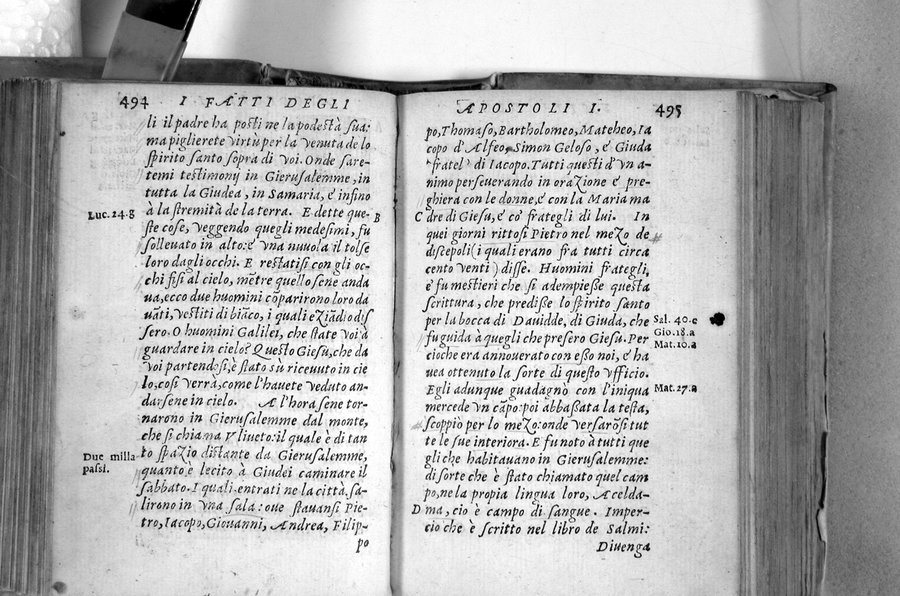 494 I FATTI DEGLI
li il padre ha posti ne la podestà sua:
ma piglierete virtù per la venuta de lo
spirito santo sopra di voi. Onde sare-
temi testimony in Gierusalemme, in
tutta la Giudea, in Samaria, e infino
à la stremità de la terra. E dette que-
ste cose, veggendo quegli medesimi, fu
solleuato in alto: e vna nuuola il tolse
loro dagli occhi. E restatisi con gli oc-
chi fisi al cielo, mẽtre quello sene anda
ua, ecco due huomini cõparirono loro da
uãti, vestiti di biãco, i quali eziãdio dis
sero. O huomini Galilei, che state voi à
guardare in cielo? Questo Giesu, che da
voi partendosi, è stato sù riceuuto in cie
lo, cosi verrà, come l'hauete veduto an-
darsene in cielo. A l'hora sene tor-
narono in Gierusalemme dal monte,
che si chiama Vliueto: il quale è di tan
to spazio distante da Gierusalemme,
quanto è lecito à Giudei caminare il
sabbato. I quali entrati ne la città sa-
lirono in vna sala: oue stauansi Pie-
tro, Iacopo, Giouanni, Andrea, Filip-
po
Luc. 24. g
B
Due milla
passi.
APOSTOLI I. 495
po, Thomaso, Bartholomeo, Matheo, Ia
copo d'Alfeo, Simon Geloso, e Giuda
fratel di Iacopo. Tutti questi d'vn a-
nimo perseuerando in orazione e pre-
ghiera con le donne, e con la Maria ma
dre di Giesu, e co' frategli di lui. In
quei giorni rittosi Pietro nel mezo de
discepoli (i quali erano fra tutti circa
cento venti) disse. Huomini frategli,
e' fu mestieri che si adempiesse questa
scrittura, che predisse lo spirito santo
per la bocca di Dauidde, di Giuda, che
fu guida à quegli che presero Giesu. Per
cioche era annouerato con esso noi, e ha
uea ottenuto la sorte di questo vfficio.
Egli adunque guadagnò con l'iniqua
mercede vn capo: poi abbassata la testa,
scoppiò per lo mezo: onde versarosi tut
te le sue interiora. E fu noto à tutti que
gli che habitauano in Gierusalemme:
di sorte che è stato chiamato quel cam
po, ne la propia lingua loro, Acelda-
ma, cio è campo di sangue. Imper-
cio che è scritto nel libro de Salmi:
Diuenga
C
D
Sal. 40. c
Gio. 18. a
Mat. 10. a
Mat. 27. a